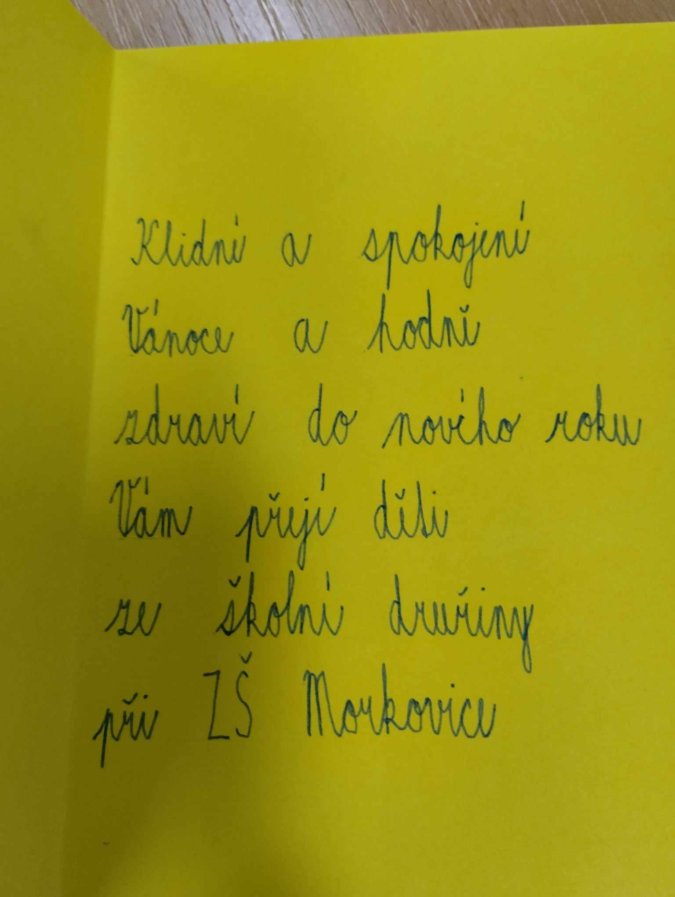 Klidné a spokojené
Vánoce a hodně
zdraví do nového roku
Vám přejí děti
ze školní družiny
při ZŠ Morkovice